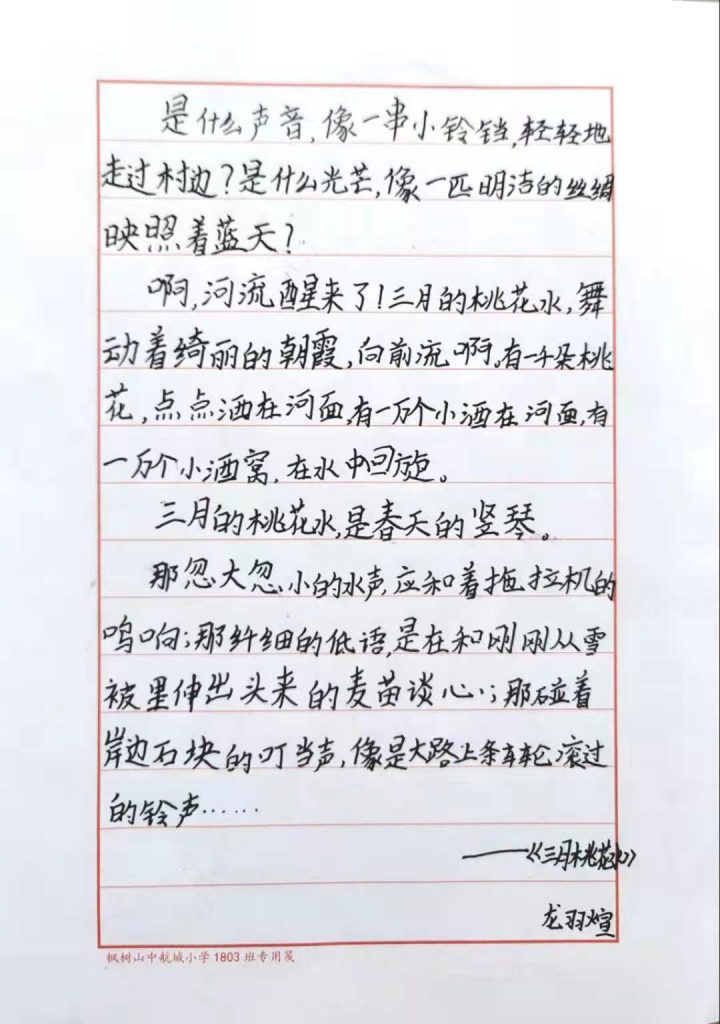 是什么声音,像一串小铃铛,轻轻地
走过村边?是什么光芒,像一匹明洁的丝绸
映照着蓝天?
啊,河流醒来了!三月的桃花水,舞
动着绮丽的朝霞,向前流啊。有一千朵桃
花,点点洒在河面,有一万个小酒在河面,有
一万个小酒窝,在水中回旋。
三月的桃花水,是春天的竖琴。
那忽大忽小的水声,应和着拖拉机的
鸣响;那纤细的低语,是在和刚刚从雪
被里伸出头来的麦苗谈心;那碰着
岸边石块的叮当声,像是大路上车轮滚过
的铃声……
——《三月桃花水》
龙羽煊
枫树山中航城小学1803班专用笺